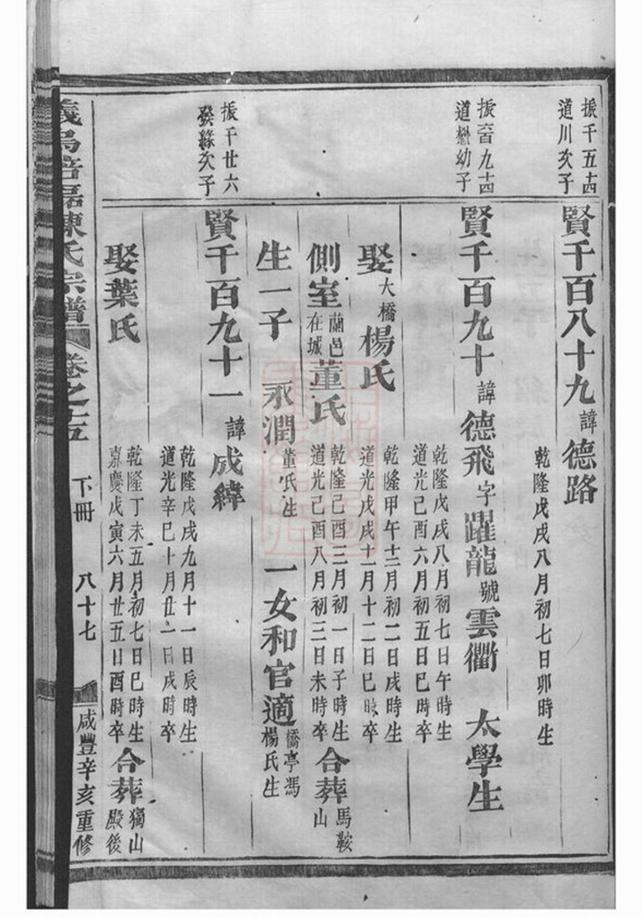 振千五十四
道川次子
賢千百八十九 諱德路
乾隆戊戌八月初七日卯時生
振百九十四
道懋幼子
賢千百九十 諱德飛 字躍龍 號雲衢 太學生
乾隆戊戌八月初七日午時生
道光己酉六月初五日巳時卒
娶 大橋 楊氏
乾隆甲午十二月初二日戌時生
道光戊戌十一月十二日巳時卒
側室 蘭邑在城 董氏
乾隆己酉三月初一日子時生
道光己酉八月初三日未時卒
合葬 馬鞍山
生一子 永潤 董氏生 一女和官適 橋亭馮 楊氏生
振千廿六
發緣次子
賢千百九十一 諱成緯
乾隆戊戌九月十一日辰時生
道光辛巳十月廿一日戌時卒
娶葉氏
乾隆丁未五月初七日巳時生
嘉慶戊寅六月廿五日酉時卒
合葬 獨山殿後
義烏倍磊陳氏宗譜 卷之十五 下冊 八十七 咸豐辛亥重修